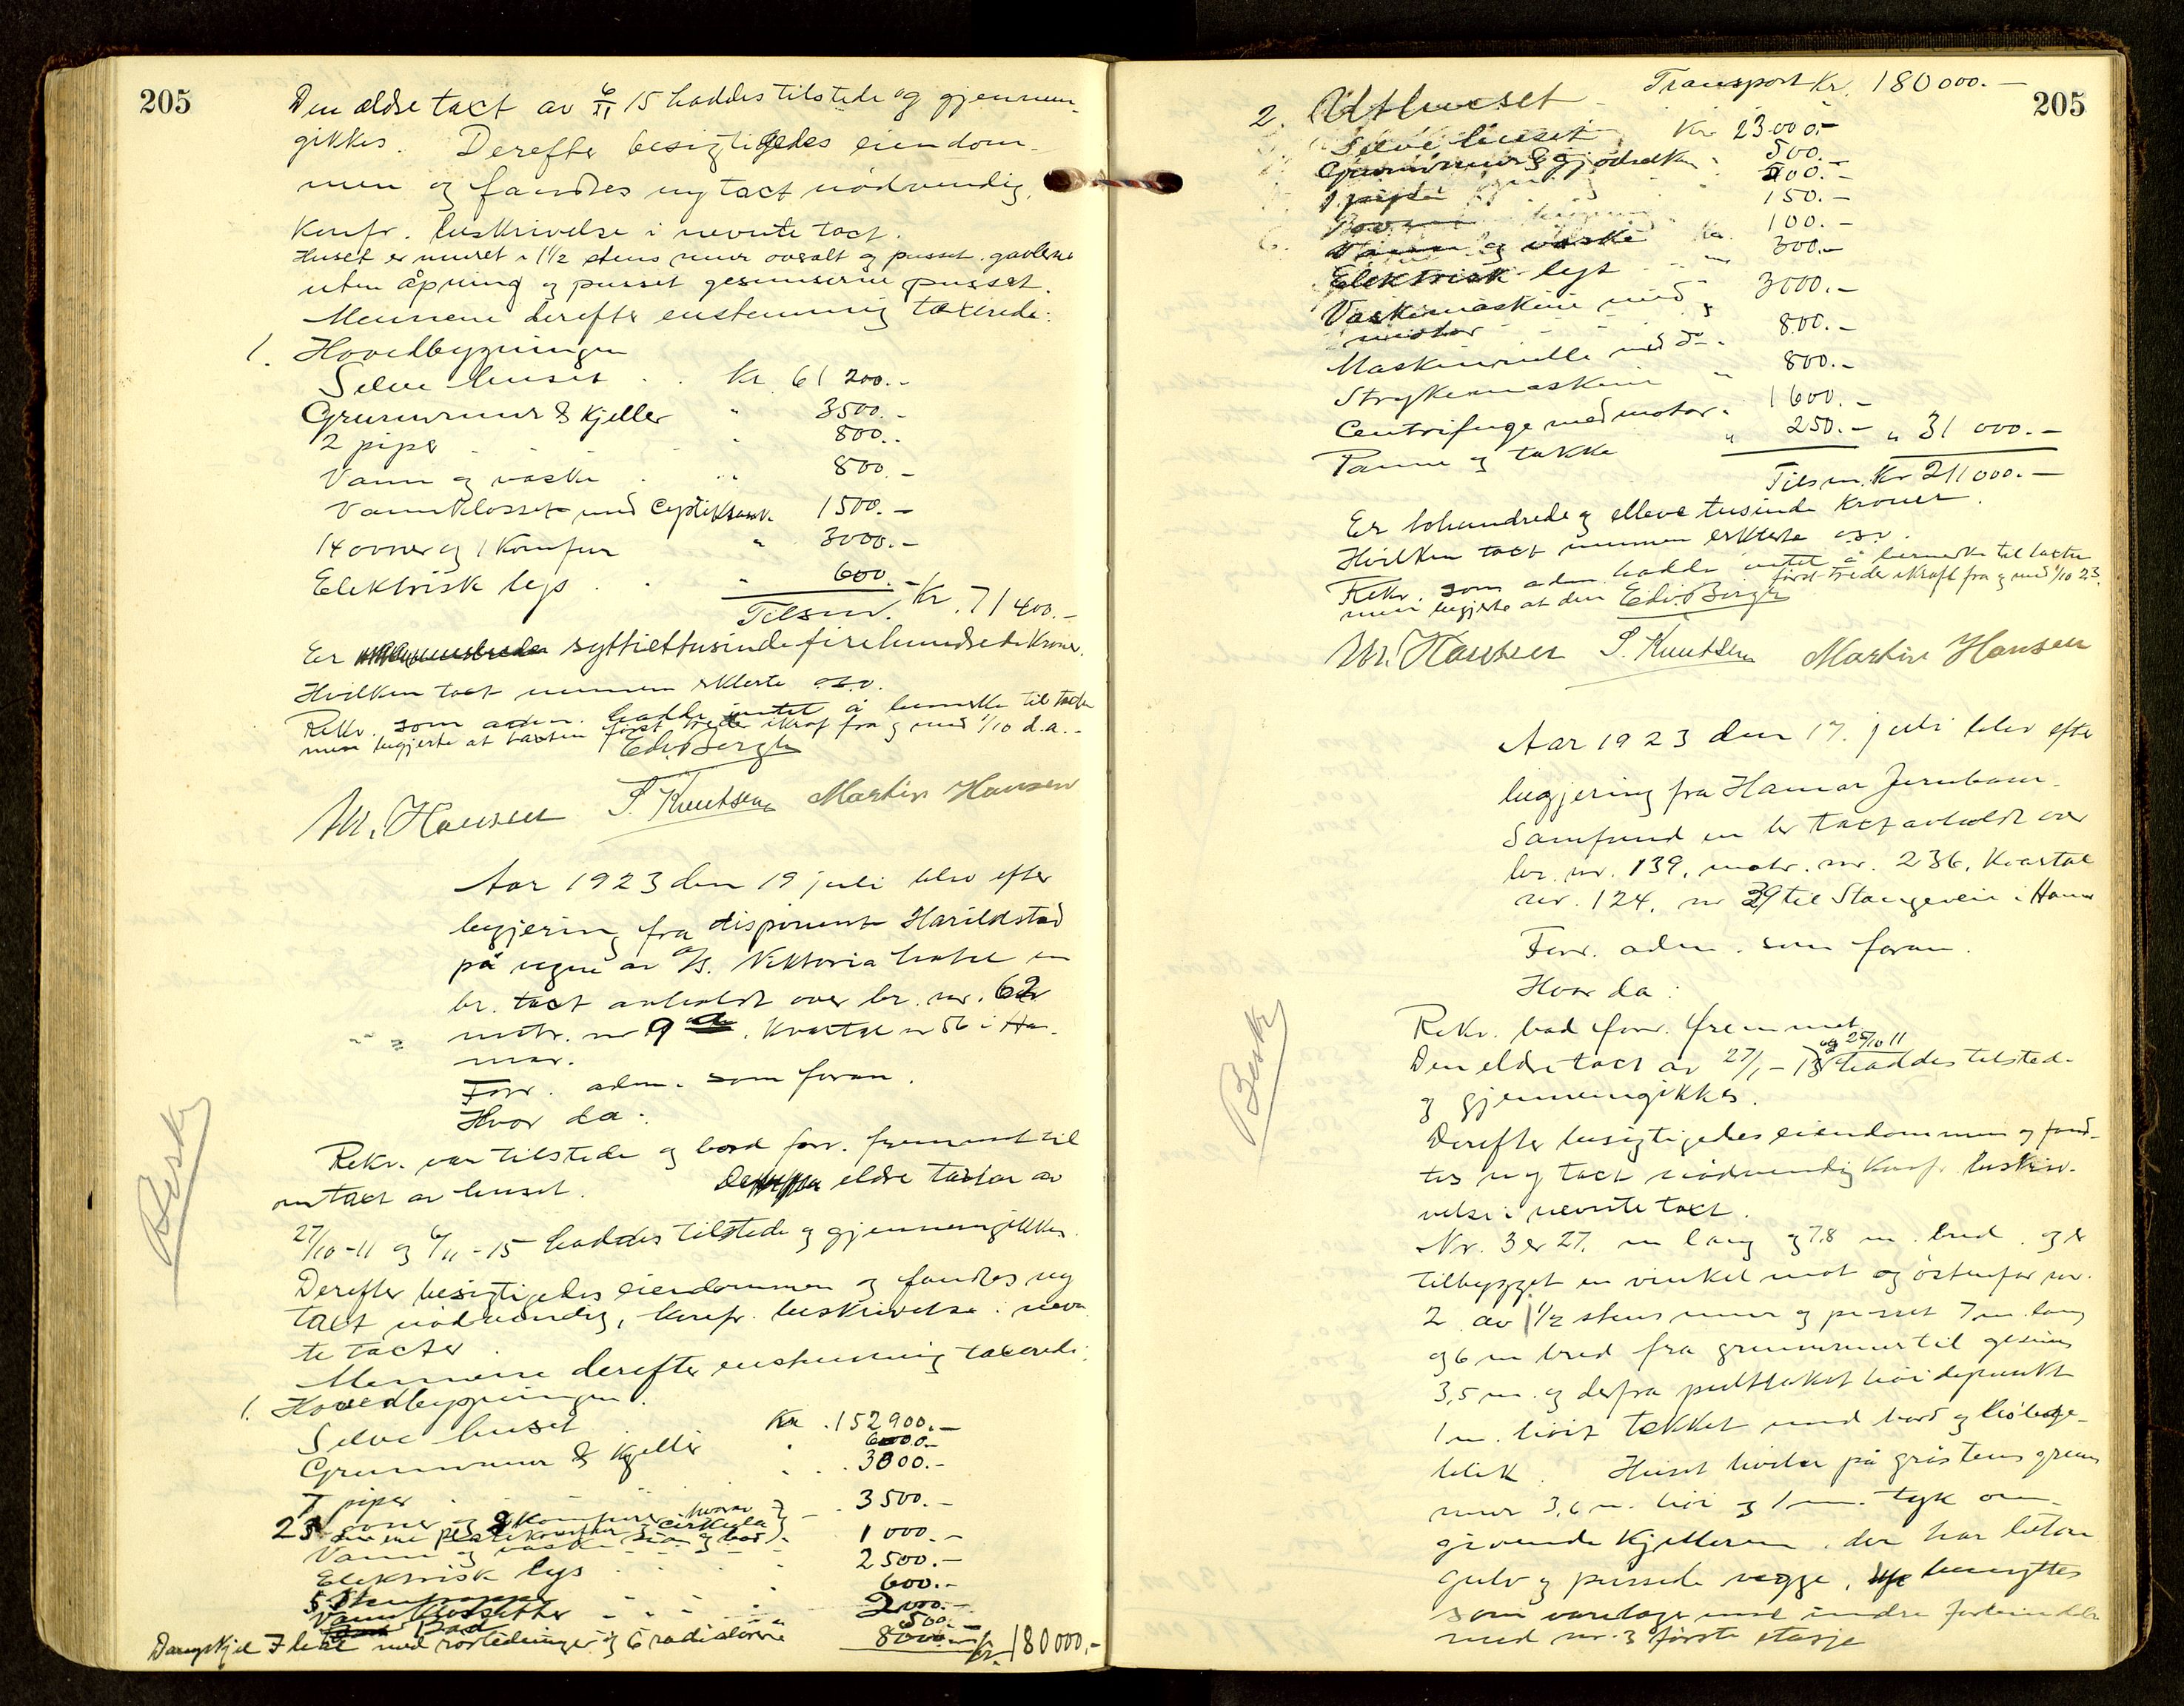 205
Den ældre taxt av 6/11 15 haddes tilstede og gjennem-
gikkes. Derefter besigtigedes eiendom-
men og fandtes ny taxt nødvendig,
Konfr. beskrivelse i nevnte taxt.
Huset er muret i 1 1/2 stens mur overalt og pusset. gavlene
uten åpning og pusset gesimserne pusset.
Mennene derefter enstemmig taxerede:
1. Hovedbygningen
Selve huset . . Kr. 61 200.-
Grunnmur & Kjeller " 3500.-
2 piper . . " 800.-
Vann og vaske . " 800.-
Vannklosset med Ceptiktank 1500.-
14 ovner og 1 Komfur " 3000.-
Elektrisk lys . . " 600.-
Tilsm. Kr. 71 400.-
Er syttiettusindefirehundrede Kroner.
Hvilken taxt mennene erklerte o.s.v.
Rekv. som adm. hadde intet å bemerke til taxten
men begjerte at taxten først treder ikraft fra og med 1/10 d.a.-
Edv. Bergh
M. Hansen S. Knutsen Martin Hansen
Aar 1923 den 19 juli blev efter
begjering fra disponent Harildstad
på vegne av A/S. Viktoria hotel en
br. taxt avholdt over br. nr. 62
matr. nr 9 . Kvartal nr 56 i Ha-
mar.
Forr. adm. som foran.
Hvor da:
Rekv. var tilstede og bad forr. fremmet til
omtaxt av huset. eldre taxter av
27/10-11 og 6/11-15 haddes tilstede og gjennemgikkes.
Derefter besigtigedes eiendommen og fandtes ny
taxt nødvendig, konfr. beskrivelse i nevn-
te taxter.
Mennene derefter enstemmig taxerede:
Besk.
1. Hovedbygningen.
Selve huset Kr. 152900.-
Grunnmur & Kjeller " 6000.-
7 piper . . . 3000.-
23 ovner og 2 Komfurer hvorav } 3500.-
den ene med cirkula og bad
Vann og vaske - - - 1000.-
Elektrisk lys . . . 2500.-
5 600.-
Vannklossetter - " " 2000.-
Bad 500.-
Dampkjel 7 hete med rørledninger og 6 radiatorer 8000.- Kr. 180000.-
205
Transport Kr. 180 000.-
2. Uthuset
Selve huset Kr. 23000.-
Grunnmur & gjødselk. " 500.-
1 pipe 200.-
150.-
og vaske Kr. 100.-
Elektrisk lys - - " 300.-
Vaskemaskine med
motor - - - " 3000.-
Maskinrulle med do " 800.-
Strykemaskine " 800.-
Centrifuge med motor " 1600.-
Panne og takke " 250.- " 31 000.-
Tilsm. Kr 211000.-
Er tohundrede og elleve tusinde Kroner.
Hvilken taxt mennen erklerte o.s.v.
Rekv. som adm. hadde intet å bemerke til taxten
men begjerte at den først treder ikraft fra og med 1/10 23.
Edv. Bergh
M. Hansen S. Knutsen Martin Hansen
Aar 1923 den 17. juli blev efter
begjering fra Hamar Jernbane-
Samfund en br taxt avholdt over
br. nr. 139, matr. nr. 236, Kvartal
nr. 124, nr 29 til Stangeveien i Hamar
Forr. adm. som foran.
Hvor da:
Rekv. bad forr. fremmet.
Den eldre taxt av 27/1-13 og 25/10 11 haddes tilstede
og gjennemgikkes.
Besk.
Derefter besigtigedes eiendommen og fand-
tes ny taxt nødvendig Konfr. beskri-
velse i nevnte taxt.
Nr. 3 er 27. m lang og 7,8 m. bred. og er
tilbygget en vinkel mot og østenfor nr.
2 av 1 1/2 stens mur og pusset 7 m. lang
og 6 m bred fra grunnmur til gesims
3,5 m. og derfra pulttaket høidepunkt
1 m. høit tekket med bord og bølge-
blik. Huset hviler på gråstens grunn-
mur 3,6 m. høi og 1 m. tyk om-
givende Kjelleren. der har beton
gulv og pussede vegge, benyttes
som varelager med indre forbindelse
med nr. 3 første etasje